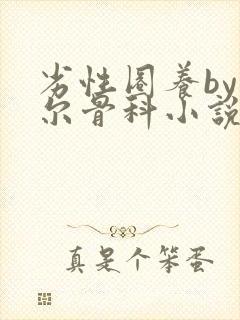 劣性圈养by
尔骨科小说
真是个笨蛋